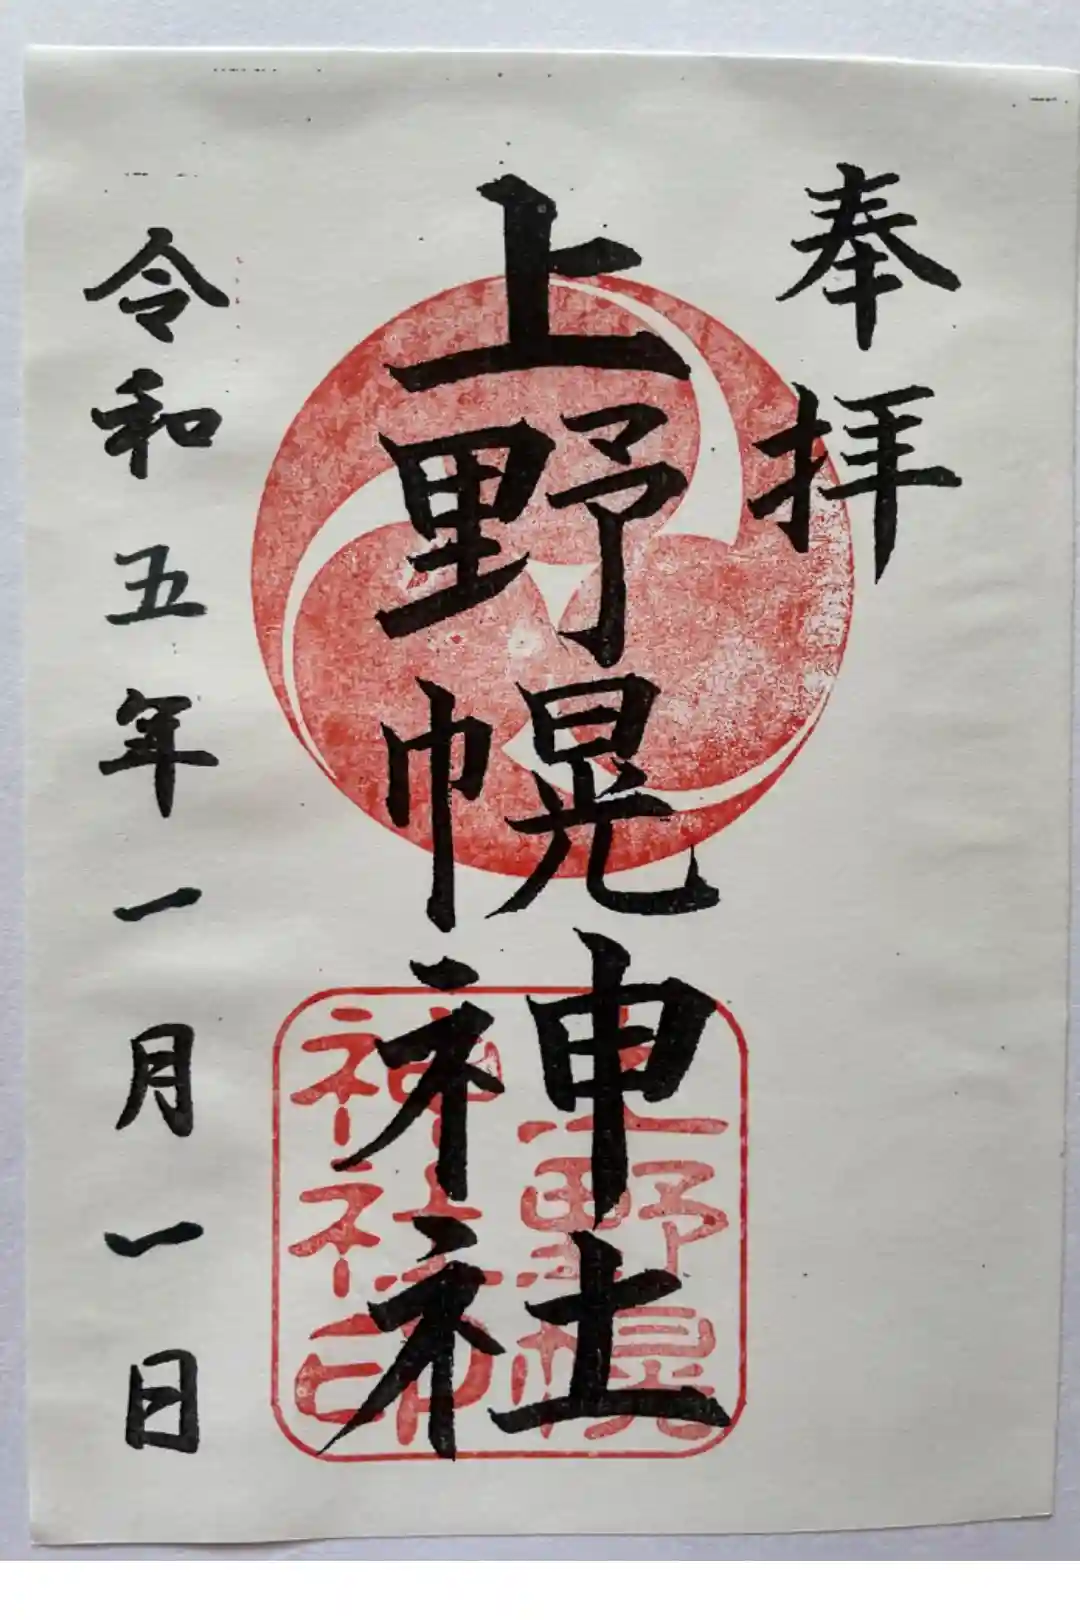 奉拝
上野幌神社
令和五年一月一日
上野幌
神社印